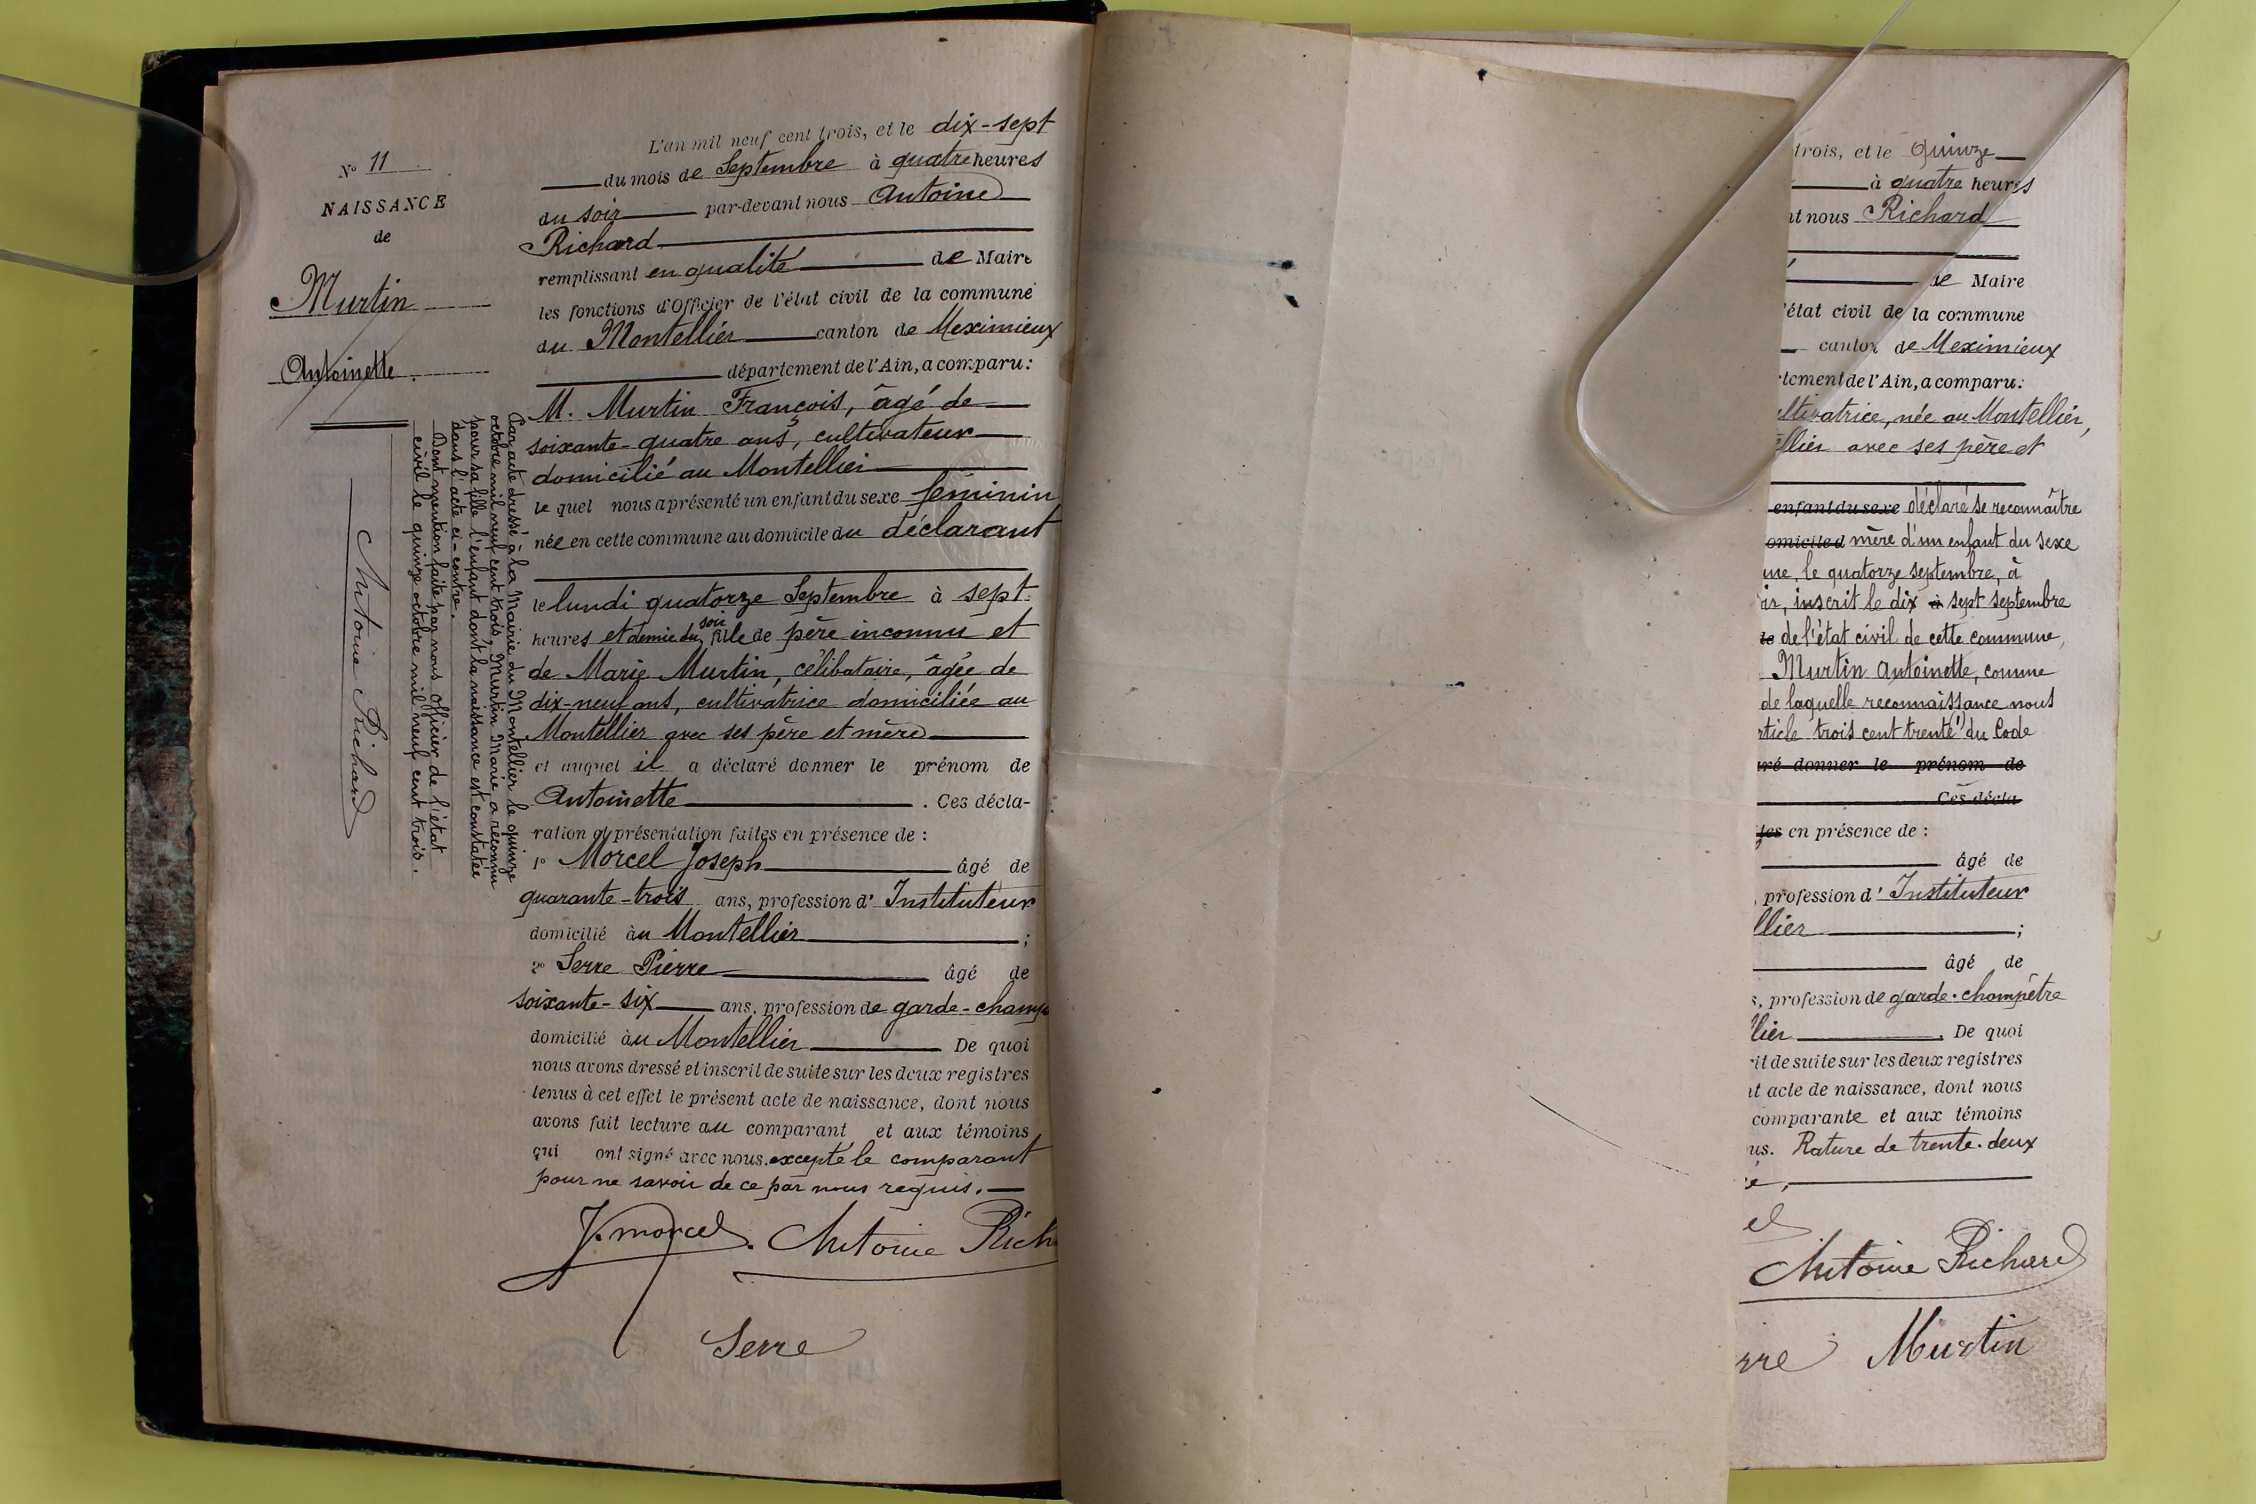 N° 11
NAISSANCE
de
Murtin
Antoinette.
Par acte dressé à la Mairie du Montellier le quinze
octobre mil neuf cent trois, Murtin Marie a reconnu
pour sa fille l'enfant dont la naissance est constatée
dans l'acte ci-contre.
Dont mention faite par nous officier de l'état
civil le quinze octobre mil neuf cent trois.
Antoine Richard
L'an mil neuf cent trois, et le dix-sept
du mois de Septembre à quatre heures
du soir par-devant nous Antoine
Richard
remplissant en qualité de Maire
les fonctions d'Officier de l'état civil de la commune
du Montellier canton de Meximieux
département de l'Ain, a comparu:
M. Murtin François, âgé de
soixante-quatre ans, cultivateur
domicilié au Montellier
lequel nous a présenté un enfant du sexe féminin
née en cette commune au domicile du déclarant
le lundi quatorze Septembre à sept
heures et demie du soir fille de père inconnu et
de Marie Murtin, célibataire, âgée de
dix-neuf ans, cultivatrice domiciliée au
Montellier avec ses père et mère
et auquel il a déclaré donner le prénom de
Antoinette. Ces décla-
ration et présentation faites en présence de :
1° Morcel Joseph âgé de
quarante-trois ans, profession d'Instituteur
domicilié au Montellier ;
2° Serre Pierre âgé de
soixante-six ans, profession de garde-champ
domicilié au Montellier De quoi
nous avons dressé et inscrit de suite sur les deux registres
tenus à cet effet le présent acte de naissance, dont nous
avons fait lecture au comparant et aux témoins
qui ont signé avec nous. excepté le comparant
pour ne savoir de ce par nous requis.
J. Morcel. Antoine Rich
Serre
trois, et le Quinze
à quatre heures
nt nous Richard
de Maire
'état civil de la commune
canton de Meximieux
rtement de l'Ain, a comparu:
ltivatrice, née au Montellier,
ellier avec ses père et
enfant du sexe déclaré se reconnaître
omicile d mère d'un enfant du sexe
une, le quatorze septembre, à
ir, inscrit le dix à sept septembre
te de l'état civil de cette commune,
Murtin Antoinette, comme
de laquelle reconnaissance nous
rticle trois cent trente du Code
ré donner le prénom de
Ces décla
tes en présence de :
âgé de
, profession d'Instituteur
llier ;
âgé de
s, profession de garde-champêtre
llier. De quoi
rit de suite sur les deux registres
nt acte de naissance, dont nous
comparante et aux témoins
us. Rature de trente-deux
é,
el
Antoine Richard
rre Murtin